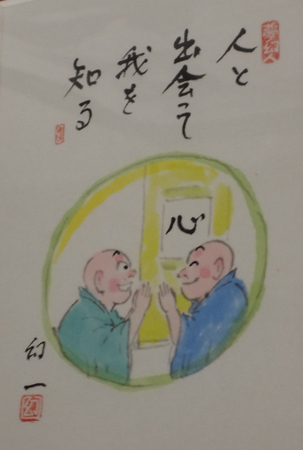 人と
出会って
我を
知る
心
幻一